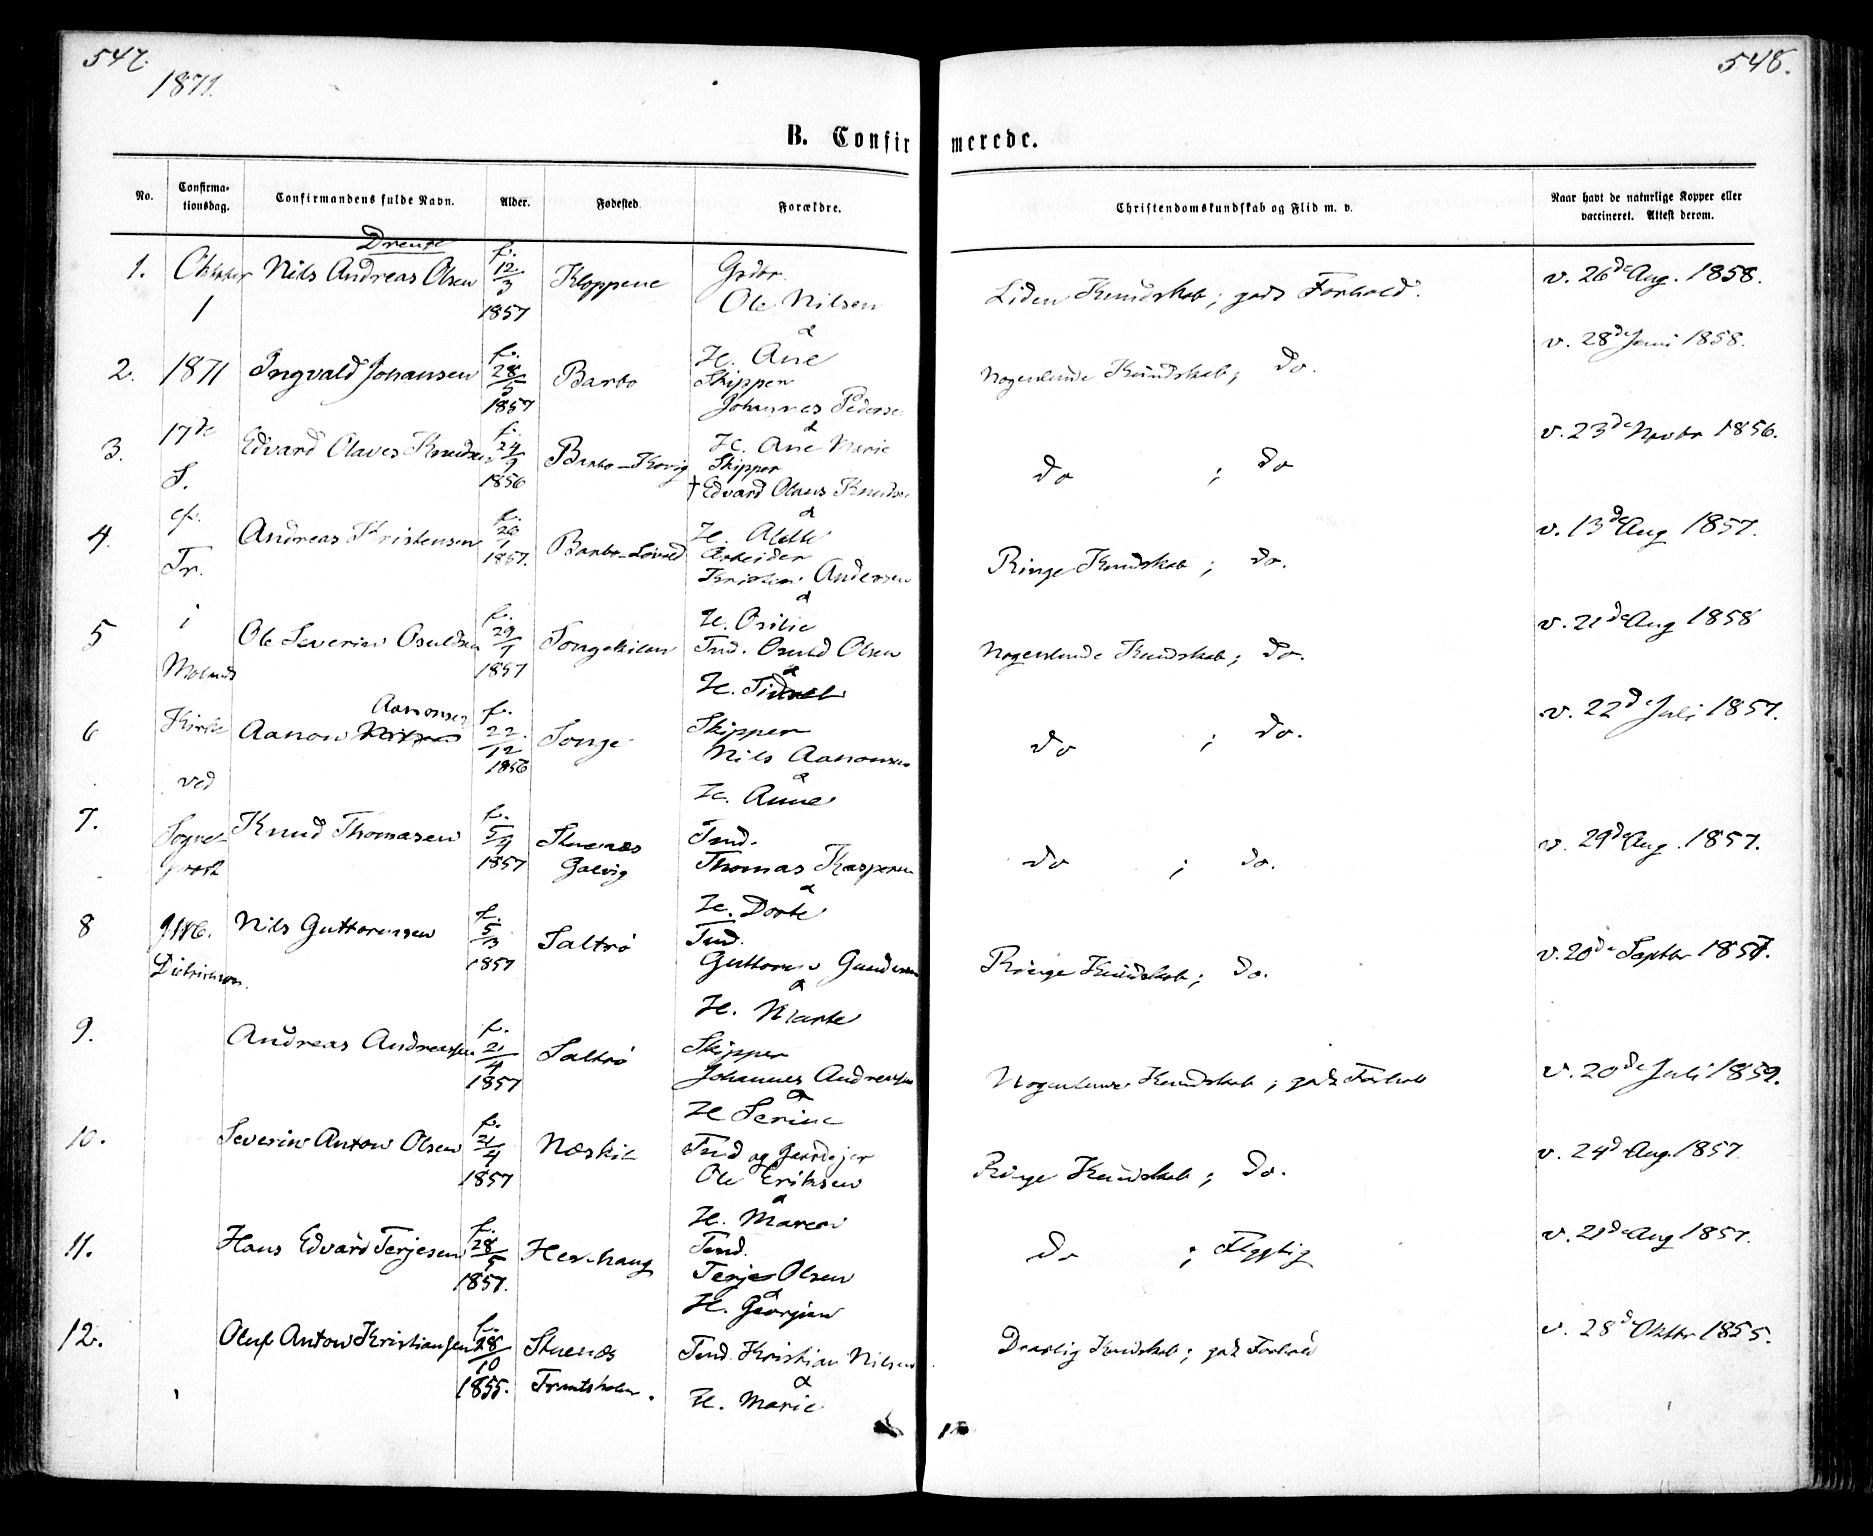 547.
548.
1871.
B. Confirmerede.
No.
Confirmationsdag.
Confirmandens fulde Navn.
Alder.
Fødested.
Forældre.
Christendomskundskab og Flid m. v.
Naar havt de naturlige Kopper eller vaccineret. Attest derom.
Drenge
1. Oktober 1 Nils Andreas Olsen f. 12/3 1857 Kloppene Gsbr. Ole Nilsen & H. Ane Liden Kundskab; godt Forhold. v. 26de Aug. 1858.
2. 1871 Ingvald Johansen f. 28/5 1857 Barbo Skipper Johannes Pederse & H. Ane Marie Nogenlunde Kundskab; do. v. 28de Juni 1858.
3. 17de S. Edvard Olaves Knudsen f. 24/9 1856 Barbo-Kovig Skipper † Edvard Olaus Knudsen & H. Alette do ; do v. 23de Novbr 1856.
4. ef. Tr. Andreas Kristensen f. 20/1 1857. Barbo- Arbeider Kristen Andersen & H. Osilie Ringe Kundskab; do. v. 13de Aug 1857.
5 i Molands Ole Severin Osuldsen f. 29/1 1857 Songekilen Ind. Osuld Olsen & H. Nogenlunde Kundskab; do. v. 21de Aug 1858
6 Kirke ved Aanon Nilsen Aanonsen f. 22/12 1856 Songe Skipper Nils Aanonsen & H. Anne do ; do. v. 22de Juli 1857.
7. Sogneprest Knud Thomasen f. 5/9 1857 Stuenæs Galvig Ind. Thomas Kaspersen & H. Dorte do ; do. v. 29de Aug. 1857.
8 Dietrichson. Nils Guttormsen f. 5/3 1857 Saltrø Ind. Guttorm Gundersen & H. Marte Ringe Kundskab; do. v. 20de Septbr 1857.
9. Andreas Andreassen f. 21/4 1857 Saltrø Skipper Johannes Andreassen & H Serine Nogenlunde Kundskab; godt Forhold v. 20de Juli 1859.
10. Severin Anton Olsen f. 21/4 1857 Næskil Ind og Gaardejer Ole Eriksen & H. Maren Ringe Kundskab; do. v. 24de Aug. 1857.
11. Hans Edvard Terjesen f. 28/5 1857. Herhaug Ind. Terje Olsen & H. Georgine do ; Flygtig v. 21de Aug 1857.
12. Oluf Anton Kristiansen f. 28/10 1855. Stuenæs Tromtsholm. Ind. Kristian Nilsen & H. Marie Daarlig Kundskab; godt Forhold v. 28de Oktbr 1855.